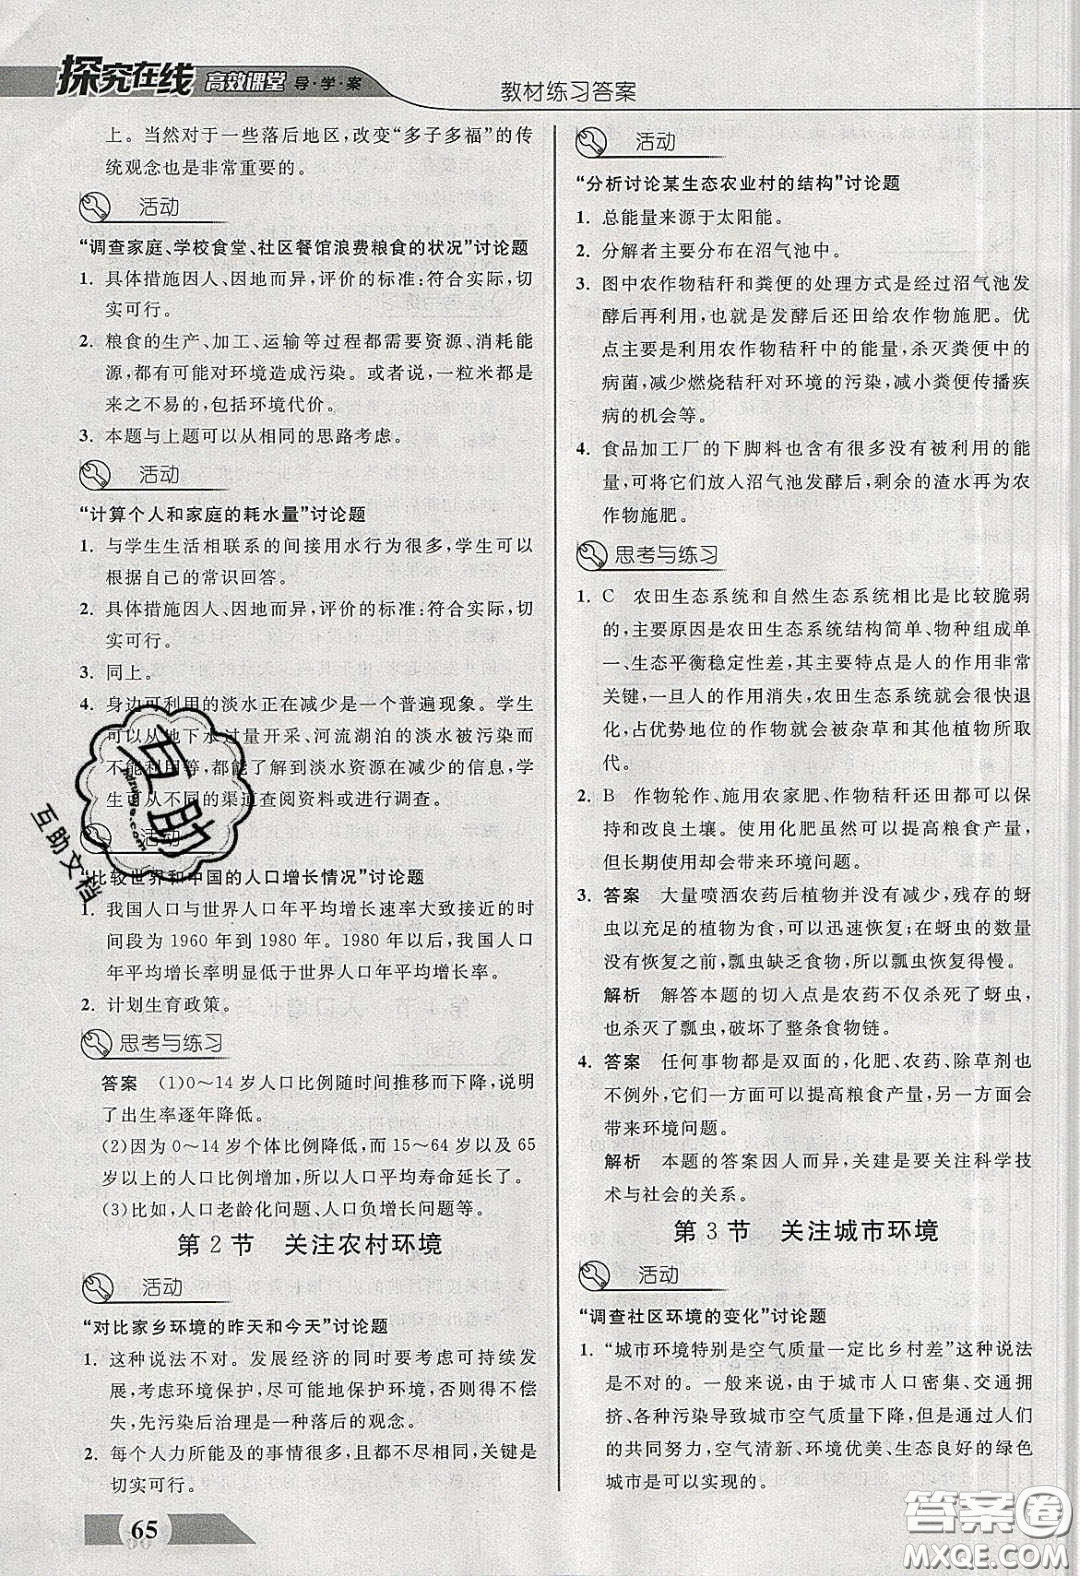 探究在线 高效课堂 导·学·案
教材练习答案
上。当然对于一些落后地区，改变“多子多福”的传
统观念也是非常重要的。
活动
“调查家庭、学校食堂、社区餐馆浪费粮食的状况”讨论题
1. 具体措施因人、因地而异，评价的标准：符合实际，切
实可行。
2. 粮食的生产、加工、运输等过程都需要资源、消耗能
源，都有可能对环境造成污染。或者说，一粒米都是
来之不易的，包括环境代价。
3. 本题与上题可以从相同的思路考虑。
活动
“计算个人和家庭的耗水量”讨论题
1. 与学生生活相联系的间接用水行为很多，学生可以
根据自己的常识回答。
2. 具体措施因人、因地而异，评价的标准：符合实际，切
实可行。
3. 同上。
4. 身边可利用的淡水正在减少是一个普遍现象。学生
可以从地下水过量开采、河流湖泊的淡水被污染而
不能利用等，都能了解到淡水资源在减少的信息，学
生可从不同的渠道查阅资料或进行调查。
活动
“比较世界和中国的人口增长情况”讨论题
1. 我国人口与世界人口年平均增长速率大致接近的时
间段为 1960 年到 1980 年。1980 年以后，我国人口
年平均增长率明显低于世界人口年平均增长率。
2. 计划生育政策。
思考与练习
答案 (1)0～14 岁人口比例随时间推移而下降，说明
了出生率逐年降低。
(2)因为 0～14 岁个体比例降低，而 15～64 岁以及 65
岁以上的人口比例增加，所以人口平均寿命延长了。
(3)比如，人口老龄化问题、人口负增长问题等。
第 2 节 关注农村环境
活动
“对比家乡环境的昨天和今天”讨论题
1. 这种说法不对。发展经济的同时要考虑可持续发
展，不能忽视环境保护，尽可能地保护环境，否则得不偿
失，先污染后治理是一种落后的观念。
2. 每个人力所能及的事情很多，且都不尽相同，关键是
切实可行。
活动
“分析讨论某生态农业村的结构”讨论题
1. 总能量来源于太阳能。
2. 分解者主要分布在沼气池中。
3. 图中农作物秸秆和粪便的处理方式是经过沼气池发
酵后再利用，也就是发酵后还田给农作物施肥。优
点主要是利用农作物秸秆中的能量，杀灭粪便中的
病菌，减少燃烧秸秆对环境的污染，减小粪便传播疾
病的机会等。
4. 食品加工厂的下脚料也含有很多没有被利用的能
量，可将它们放入沼气池发酵后，剩余的渣水再为农
作物施肥。
思考与练习
1. C 农田生态系统和自然生态系统相比是比较脆弱
的，主要原因是农田生态系统结构简单、物种组成单
一、生态平衡稳定性差，其主要特点是人的作用非常
关键，一旦人的作用消失，农田生态系统就会很快退
化，占优势地位的作物就会被杂草和其他植物所取
代。
2. B 作物轮作、施用农家肥、作物秸秆还田都可以保
持和改良土壤。使用化肥虽然可以提高粮食产量，
但长期使用却会带来环境问题。
3. 答案 大量喷洒农药后植物并没有减少，残存的蚜
虫以充足的植物为食，会迅速恢复；在蚜虫的数量
没有恢复之前，瓢虫缺乏食物，所以不会迅速恢复。
解析 解答本题的切入点是农药不仅杀死了蚜虫，
也杀灭了瓢虫，破坏了整条食物链。
4. 答案 任何事物都是双面的，化肥、农药、除草剂也
不例外，它们一方面可以提高粮食产量，一方面可以
带来环境问题。
解析 本题的答案因人而异，关建是要关注科学技
术与社会的关系。
第 3 节 关注城市环境
活动
“调查社区环境的变化”讨论题
1. “城市环境特别是空气质量一定比乡村差”这种说法
是不对的。一般来说，由于城市人口密集、交通拥
挤、各种污染导致城市空气质量下降，但通过人们的
共同努力，空气清新、环境优美、生态良好的绿色
城市是可以实现的。
65
互助
互助文档
答案圈
MXQE.COM